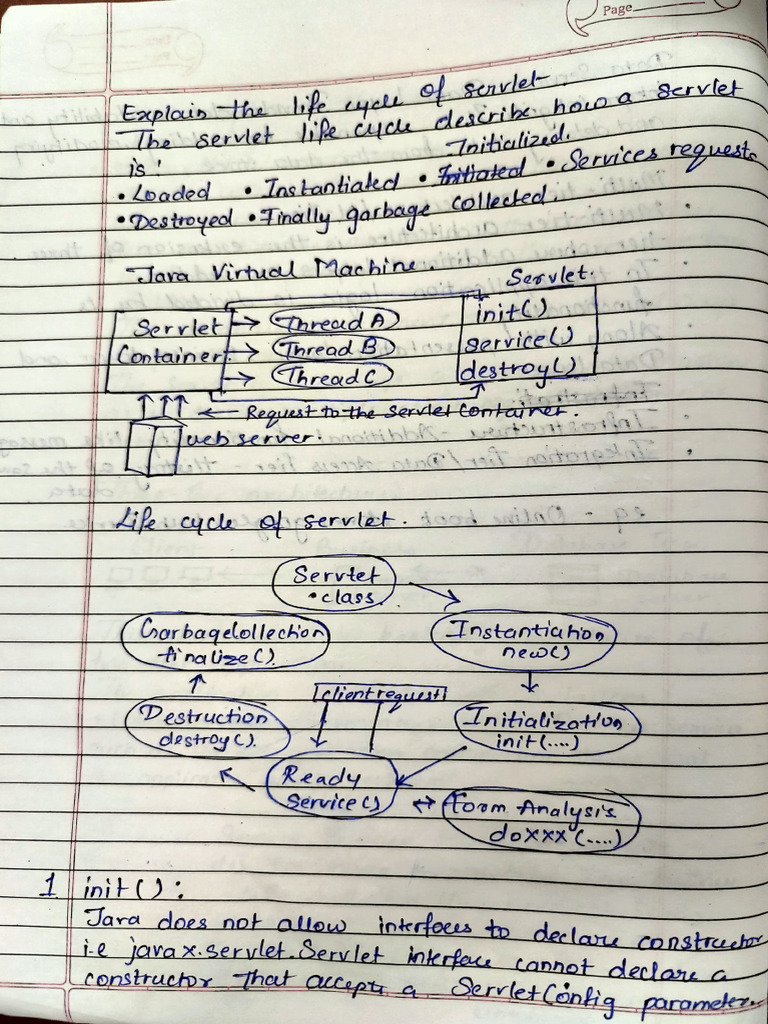 Page
Explain the life cycle of servlet
The servlet life cycle describe how a servlet
is: Initialized.
• Loaded • Instantiated • Initiated • Services requests
• Destroyed • Finally garbage collected.
Java Virtual Machine.
Servlet.
Servlet Container
Thread A
Thread B
Thread C
init()
service()
destroy()
Request to the servlet container.
web server.
Life cycle of servlet.
Servlet
.class
Garbagecollection
finalize().
Instantiation
new()
client request
Destruction
destroy().
Initialization
init(....)
Ready
Service()
Form Analysis
doXXX(....)
1 init():
Java does not allow interfaces to declare constructor
i.e javax.servlet.Servlet interface cannot declare a
constructor that accepts a ServletConfig parameter.